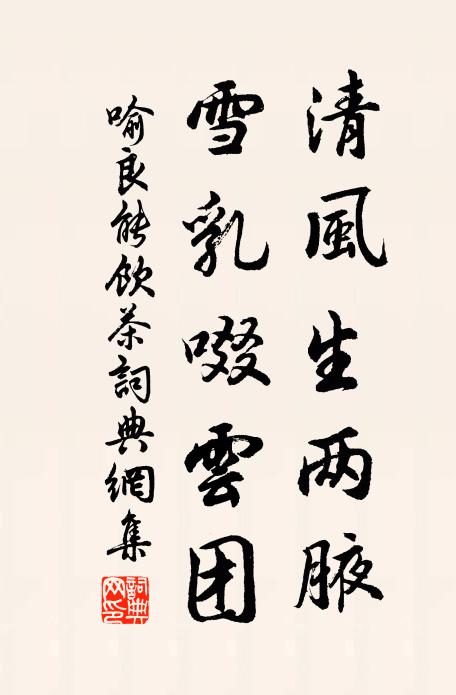 清風生两腋
雪乳啜雲团
喻良能飲茶詞典網集
詞典網印